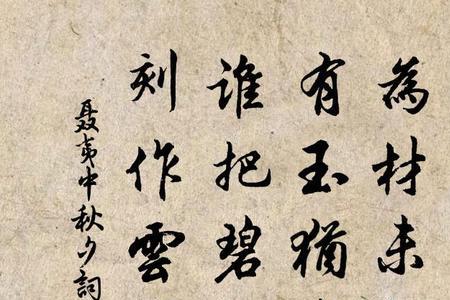 為材未
有玉猶
誰把碧
刻作雲
聶夷中秋夕詞